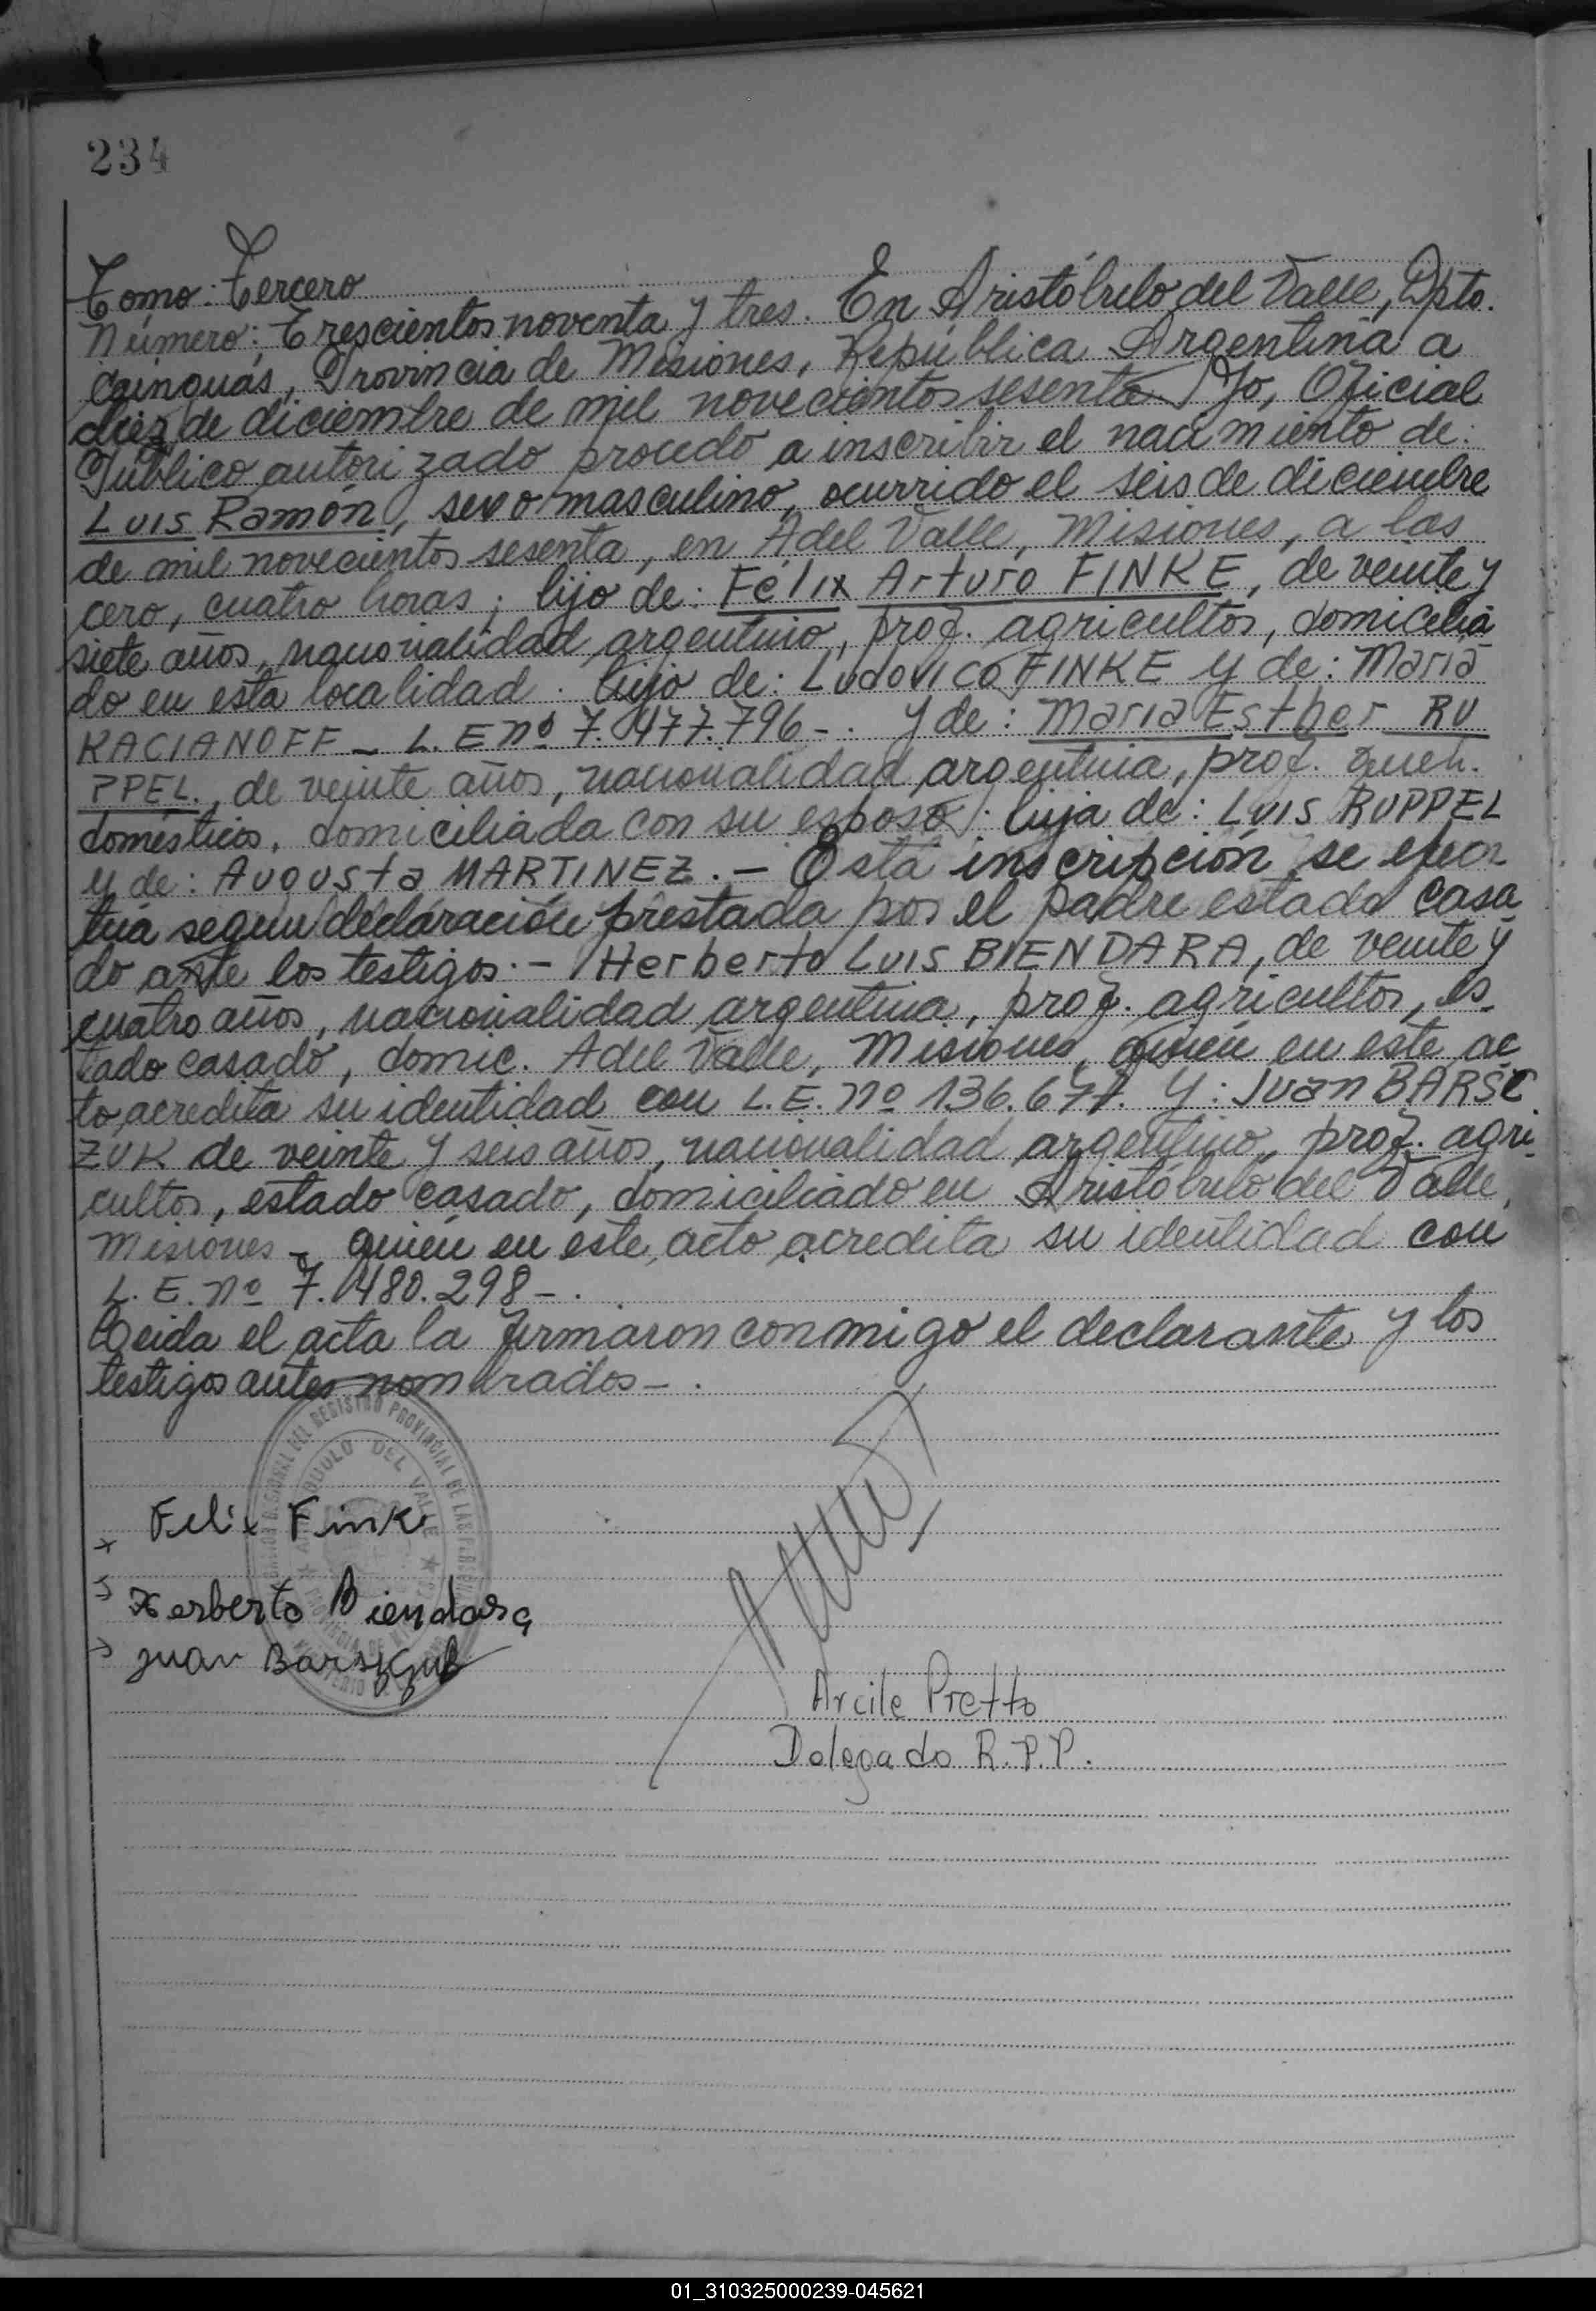 234
Tomo: Tercero
Número: Trescientos noventa y tres. En Aristóbulo del Valle, Dpto.
Cainguás, Provincia de Misiones, República Argentina a
diez de diciembre de mil novecientos sesenta Yo, Oficial
Público autorizado procedo a inscribir el nacimiento de:
Luis Ramón, sexo masculino, ocurrido el seis de diciembre
de mil novecientos sesenta, en Adel Valle, Misiones, a las
cero, cuatro horas; hijo de: Félix Arturo FINKE, de veinte y
siete años, nacionalidad argentino, prof. agricultor, domicilia
do en esta localidad. hijo de: Ludovico FINKE y de: María
KACIANOFF - L. E nº 7.477.796 -. y de: María Esther RU
PPEL, de veinte años, nacionalidad argentina, prof. queh.
domésticos, domiciliada con su esposo. hija de: Luis RUPPEL
y de: Augusta MARTINEZ. - Esta inscripción se efec
túa según declaración prestada por el padre estado casa
do ante los testigos. - Herberto Luis BIENDARA, de veinte y
cuatro años, nacionalidad argentina, prof. agricultor, es
tado casado, domic. Adel Valle, Misiones, quién en este ac
to acredita su identidad con L.E. nº 136.677. y: Juan BARSC
ZUK de veinte y seis años, nacionalidad argentino, prof. agri
cultor, estado casado, domiciliado en Aristóbulo del Valle,
Misiones - quién en este acto acredita su identidad con
L.E. nº 7.480.298 -.
Leida el acta la firmaron conmigo el declarante y los
testigos antes nombrados -.
DEL REGISTRO PROVINCIAL DE LAS
DEL VALLE
Felix Finke
Herberto Biendara
Juan
Arcile Pretto
Delegado R.P.P.
01_310325000239-045621